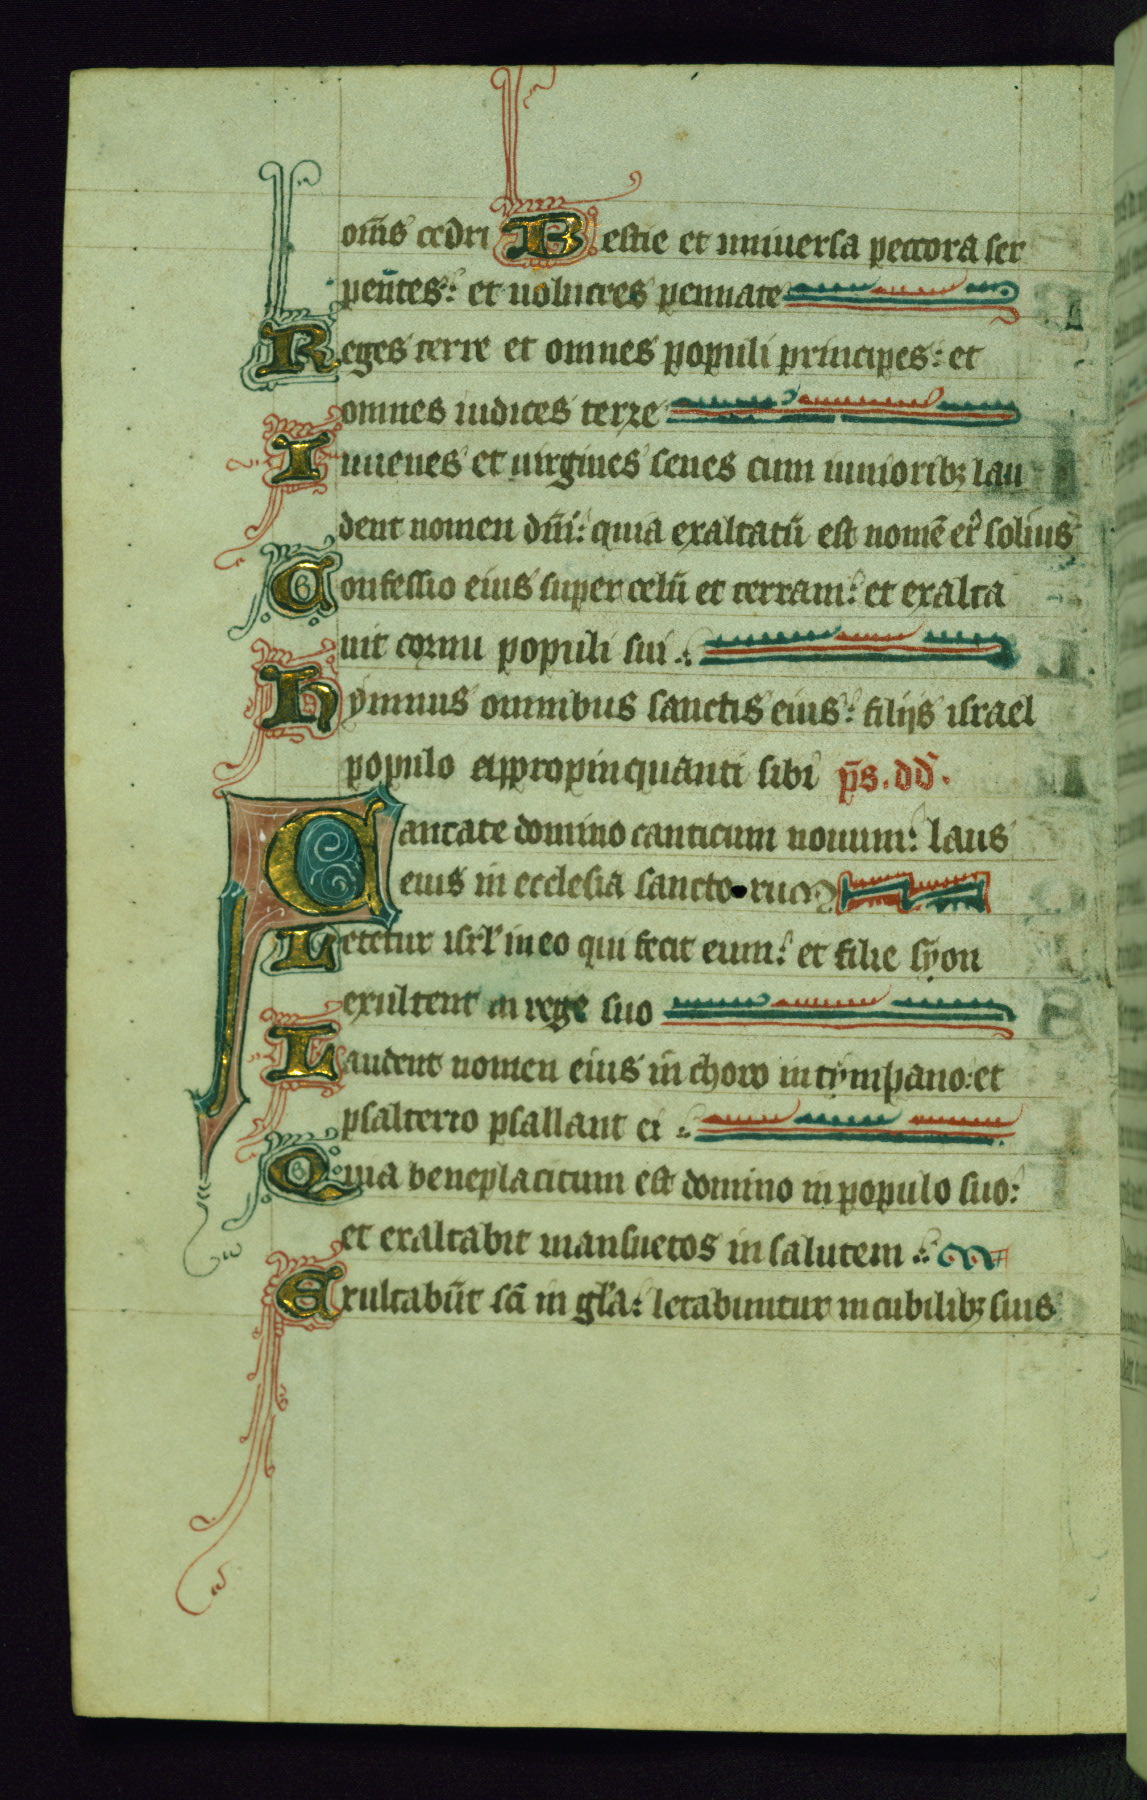 om̄s cedri Bestie et uniuersa peccora ser
pen̄tes: et uolucres pennate
Reges terre et omnes populi principes: et
omnes iudices terre
Iuuenes et uirgines senes cum iunioribꝫ lau
dent nomen dn̄i: quia exaltatū est nomē ei᷒ solius
Confessio eius super celū et terram: et exalta
uit cornu populi sui
Hymnus omnibus sanctis eius: filijs israel
populo appropinquanti sibi p̄s. dd̄.
Cantate domino canticum nouum: laus
eius in ecclesia sancto rum
Letetur isrl̄ in eo qui fecit eum: et filie syon
exultent in rege suo
Laudent nomen eius in choro in tympano: et
psalterio psallant ei
Quia beneplacitum est domino in populo suo:
et exaltabit mansuetos in salutem
Exultabūt sc̄i in gl̄a: letabuntur in cubilibꝫ suis